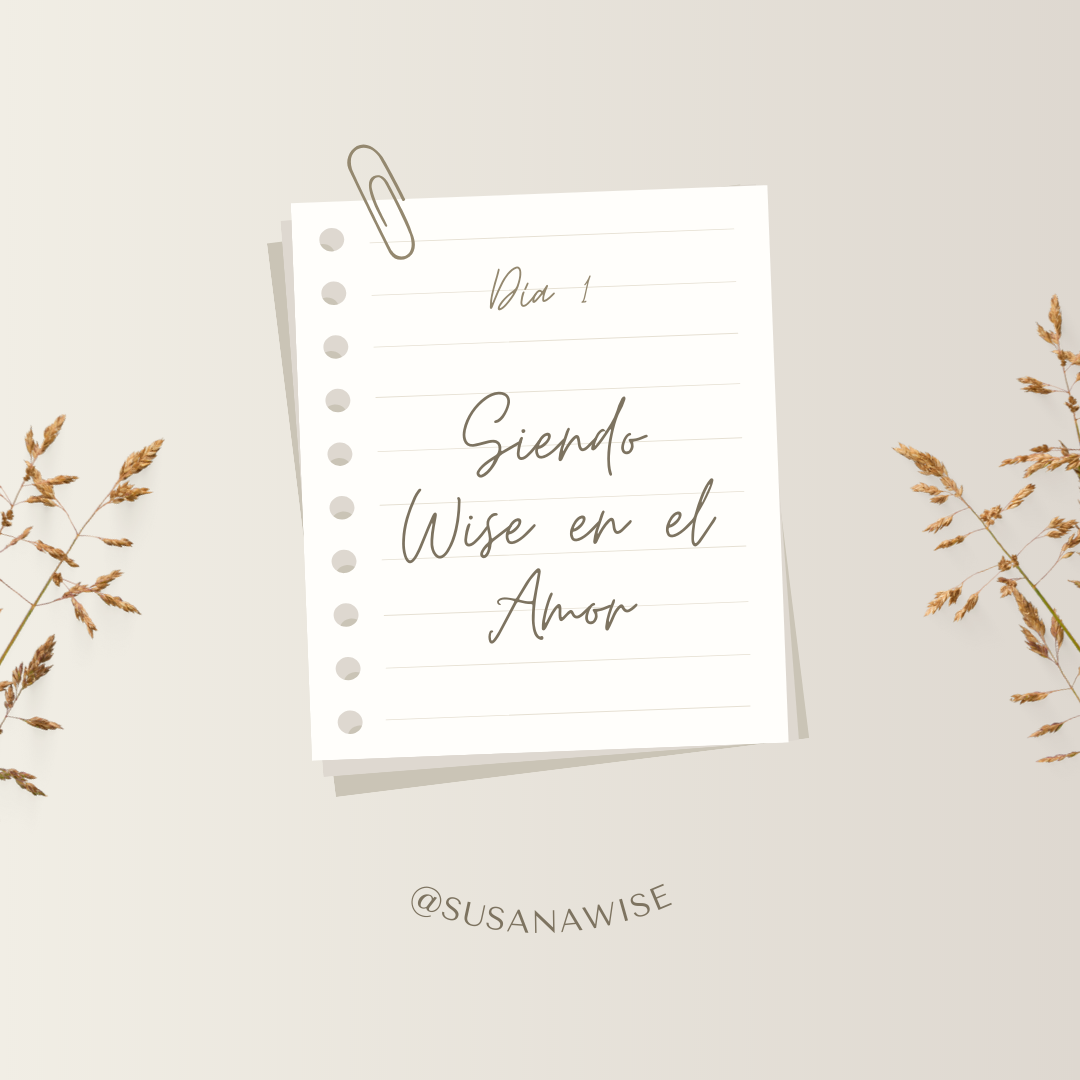 Día 1
Siendo
Wise en el
Amor
@SUSANAWISE